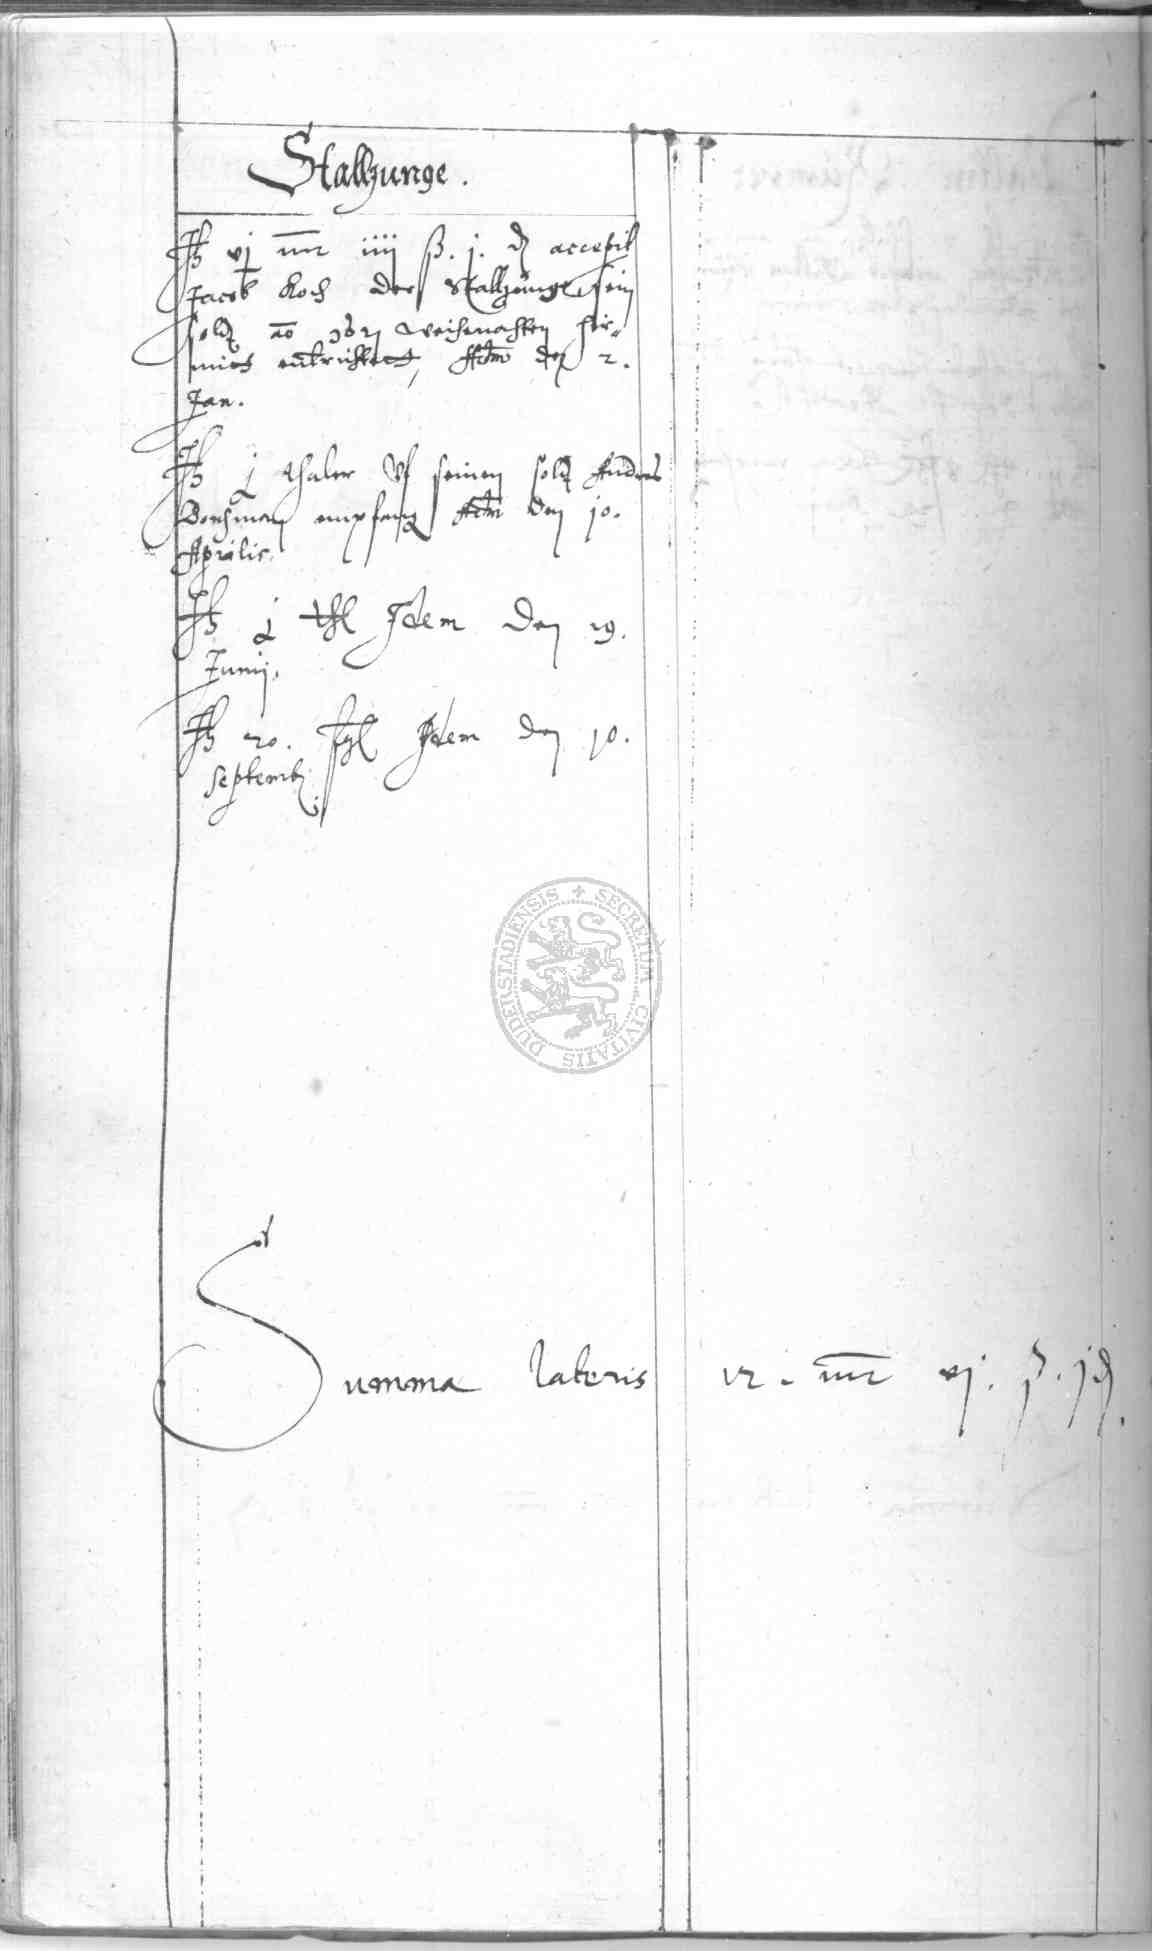 Stalljunge.
It vj mr iiij ß. j. d accepit
Jacob Koch der Stalljunge sein
solt ao weihenachten
entrichtet, Actum den 2.
Jan.
It j thaler Vf seinen solt Andres
empfang Actum den 10.
Aprilis.
It j thl Idem den 19.
Junij.
It 20. fgl Idem den 10.
Septemb
SECRETUM CIVITATIS DUDERSTADIENSIS
Summa lateris mr vj. ß. j d.